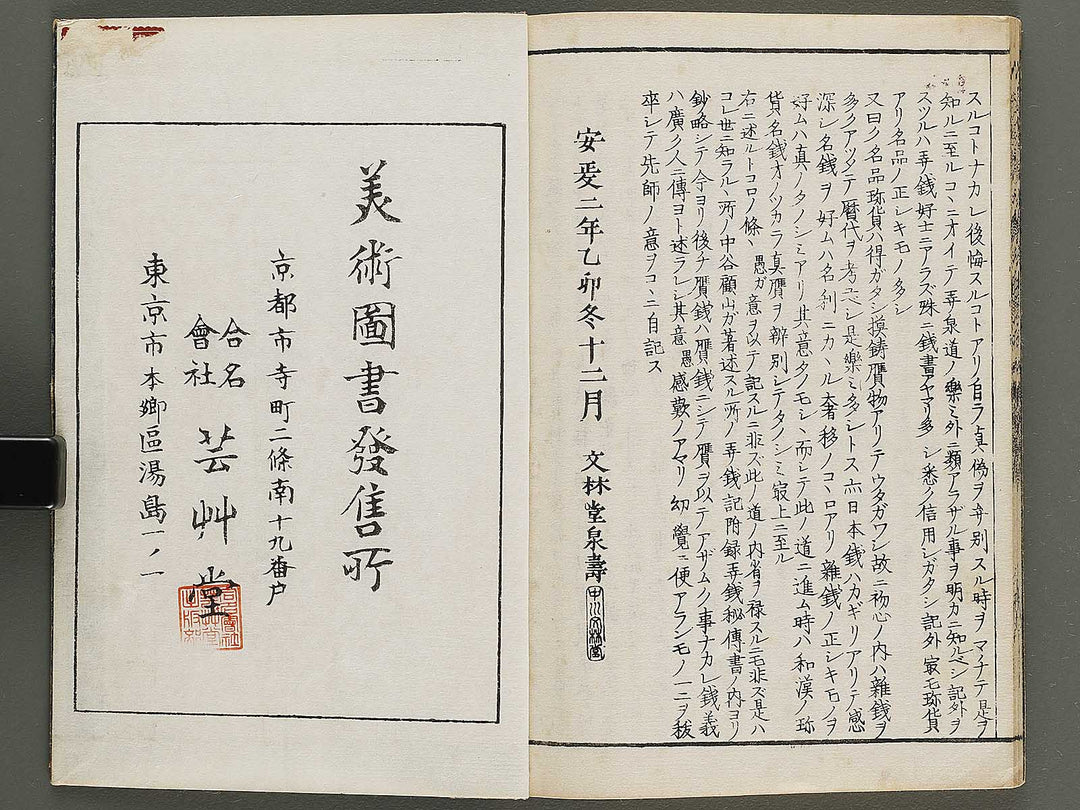 スルコトナカレ後悔スルコトアリ自ラ真偽ヲ弁別スル時ヲマチテ是ヲ
知ルニ至ルコヽニオイテ弄泉道ノ樂ミ外ニ類アラザル事ヲ明カニ知ルベシ記外ヲ
スツルハ弄銭好士ニアラズ殊ニ銭書アヤマリ多シ悉ク信用シガタシ記外寂モ珎貨
アリ名品ノ正シキモノ多シ
又曰ク名品珎貨ハ得ガタシ摸鋳贋物アリテウタガワシ故ニ初心ノ内ハ雜銭ヲ
多クアツメテ曆代ヲ考フベシ是樂ミ多シトス
日本銭ハカギリアリテ感
深シ名銭ヲ好ムハ名利ニカヽル奢移ノコヽロアリ雜銭ノ正シキモノヲ
好ムハ真ノタノシミアリ其意タノモシヽ而シテ此ノ道ニ進ム時ハ和漢ノ珎
貨名銭オノツカラ真贋ヲ辨別シテタノシミ寂上ニ至ル
右ニ述ルトコロノ條ヽ愚ガ意ヲ以テ記スルニ非ズ此ノ道ノ内省ヲ禄スルニモ非ズ是ハ
コレ世ニ知ラルヽ所ノ中谷顧山ガ著述スル所ノ弄銭記附録弄銭秘傳書ノ内ヨリ
鈔略シテ今ヨリ後チ贋銭ハ贋銭ニシテ贋ヲ以テアザムク事ナカレ銭義
ハ廣ク人ニ傳ヨト述ラレシ其意愚感歎ノアマリ幼覺ニ便アランモノ一二ヲ抜
卒シテ先師ノ意ヲコヽニ自記ス
安政二年乙卯冬十二月 文林堂泉壽
中川文林堂
美術圖書發售所
京都市寺町二條南十九番戸
合名會社 芸艸堂
東京市本郷區湯島一ノ一